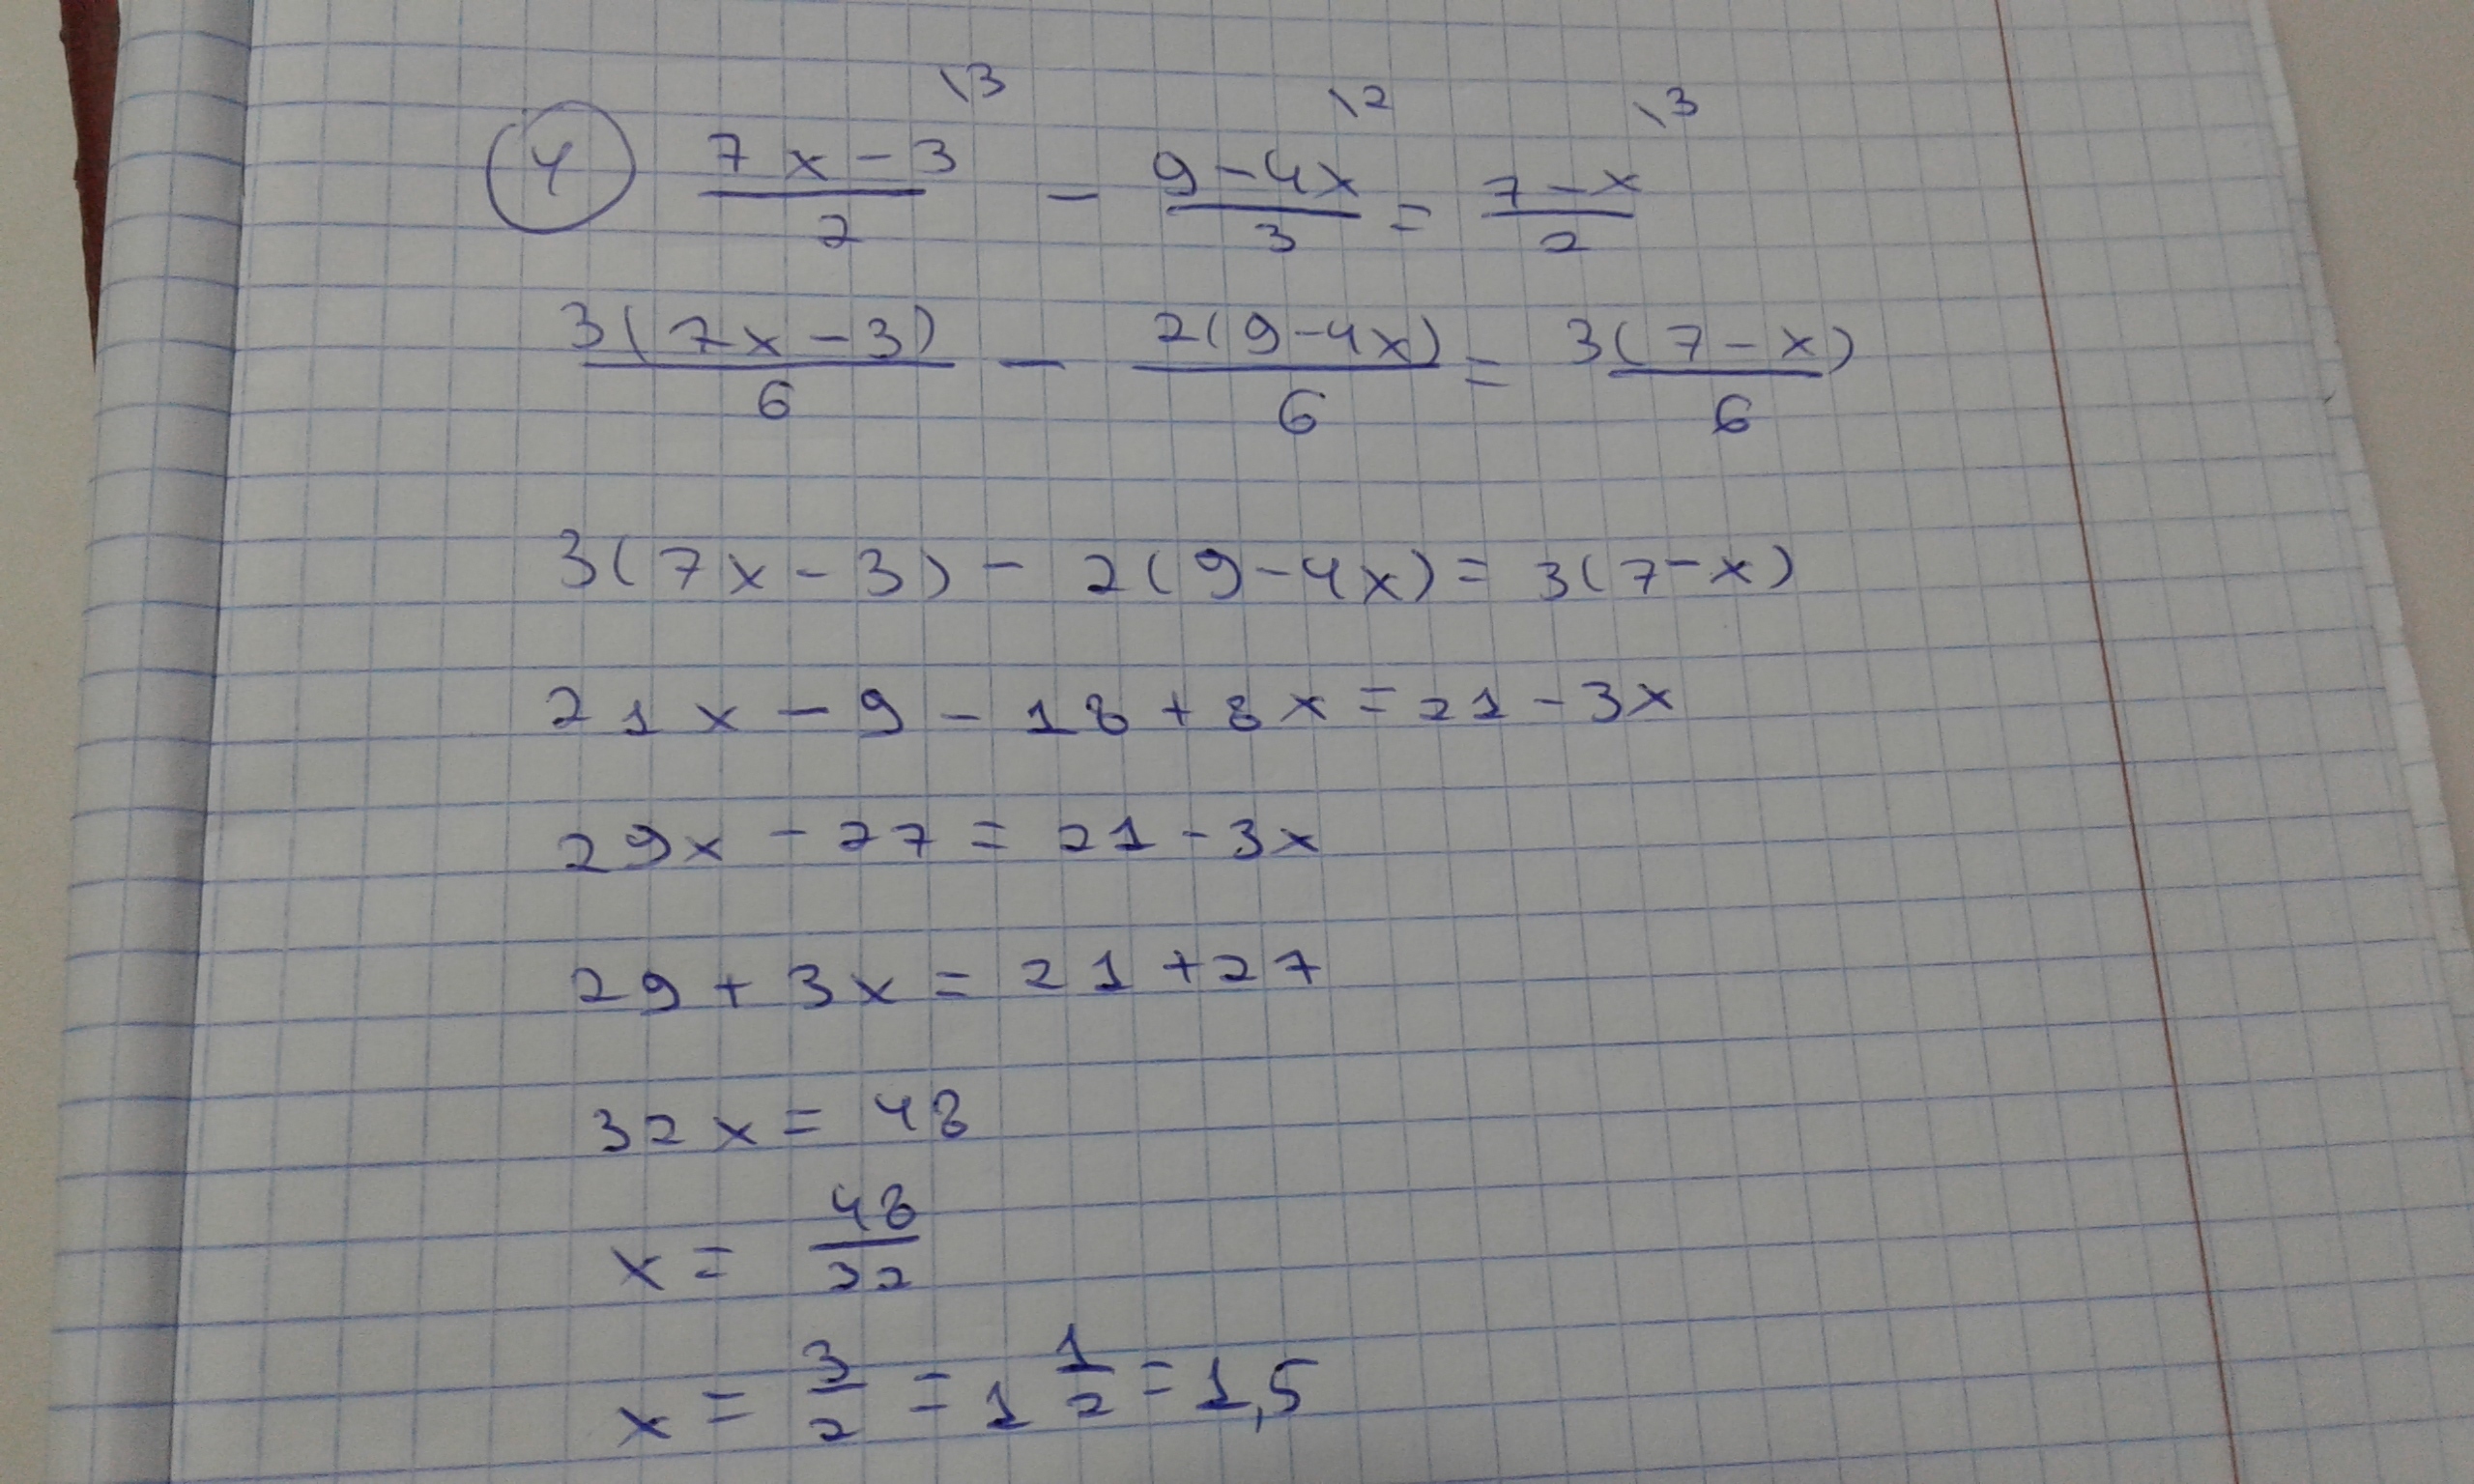 4 (7x-3)/2 \3 - (9-4x)/3 \2 = (7-x)/2 \3
3(7x-3)/6 - 2(9-4x)/6 = 3(7-x)/6
3(7x-3) - 2(9-4x) = 3(7-x)
21x - 9 - 18 + 8x = 21 - 3x
29x - 27 = 21 - 3x
29 + 3x = 21 + 27
32x = 48
x = 48/32
x = 3/2 = 1 1/2 = 1,5